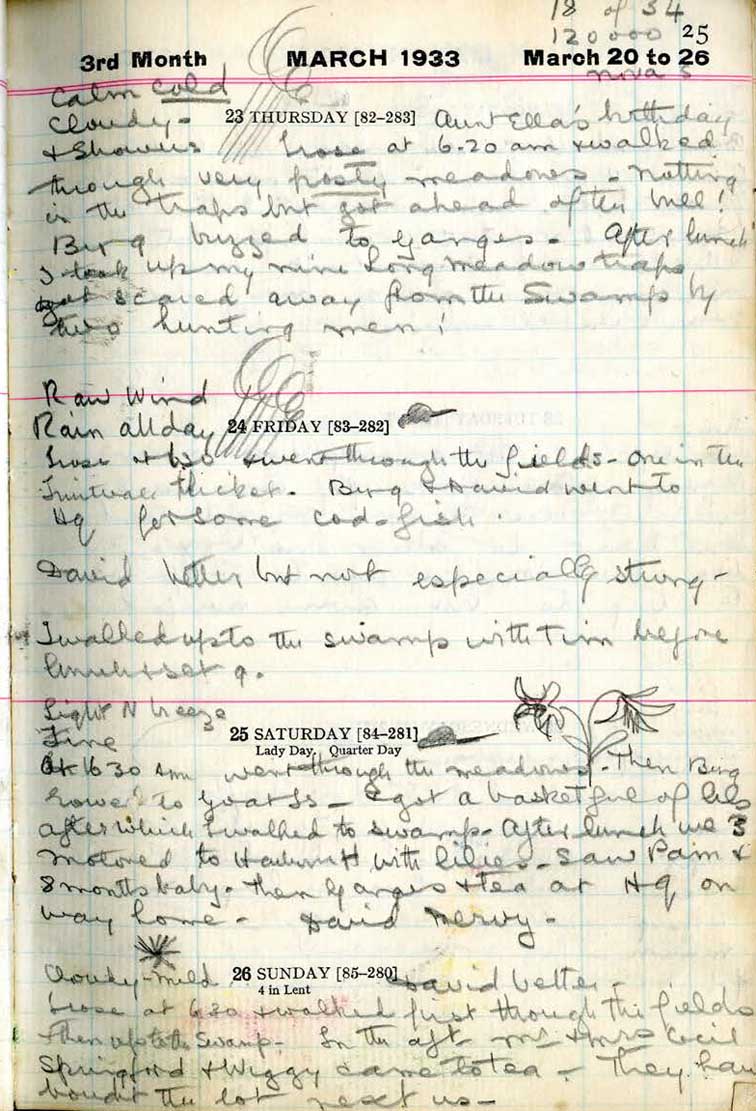 18 of 34
120000 25
3rd Month MARCH 1933 March 20 to 26
Calm cold
Cloudy - 23 THURSDAY [82-283] Aunt Ella's birthday
& Showers I rose at 6.20 am & walked
through very frosty meadows - nothing
in the traps but got ahead of the mee!
Bing buzzed to Ganges - After lunch
I took up my nine Long meadow traps
got scared away from the Swamp by
two hunting men!
Raw Wind
Rain all day 24 FRIDAY [83-282]
I rose at 6.30 & went through the fields - one in the
thicket - Bing & David went to
Hq for some cod-fish.
David better but not especially strong -
I walked up to the swamp with Tim before
lunch & set 9.
Light N breeze
Fine 25 SATURDAY [84-281]
Lady Day. Quarter Day
At 6 30 Am went through the meadows - Then Bing
rowed to goat Is - & got a basket ful of lilies
after which I walked to swamp - After lunch we 3
motored to with lilies - Saw Pam &
8 months baby - then Ganges & tea at HQ on
way home - David nervy -
Cloudy - mild 26 SUNDAY [85-280] David better -
4 in Lent
I rose at 6.30 & walked first through the fields
& then up to the Swamp - In the aft Mr & Mrs Cecil
Springford & Wiggy came to tea - They have
bought the lot next us -